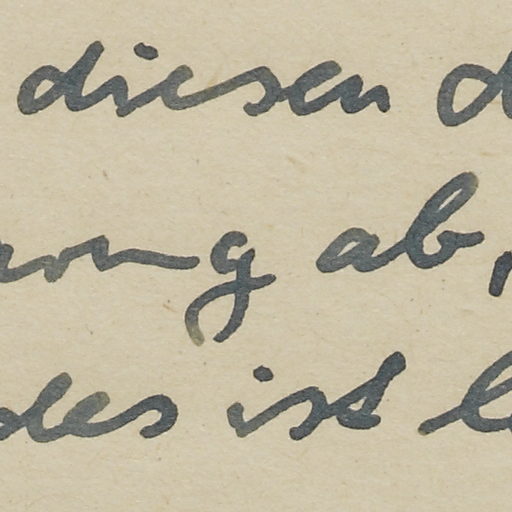 diesen d
ung ab,
des ist le